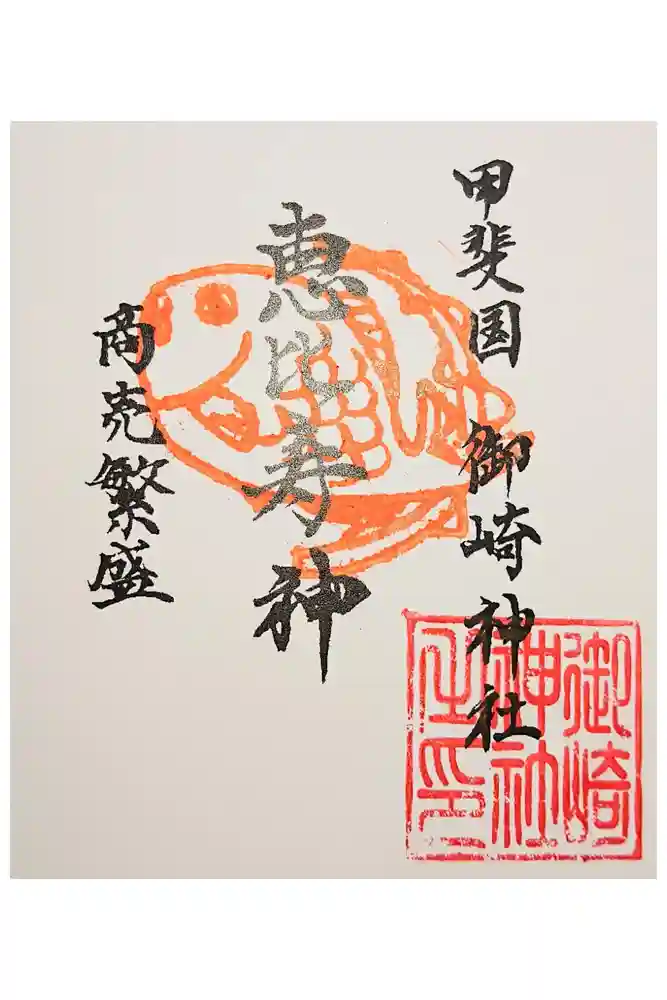 甲斐国 御崎神社
恵比寿神
商売繁盛
御崎
神社
之印